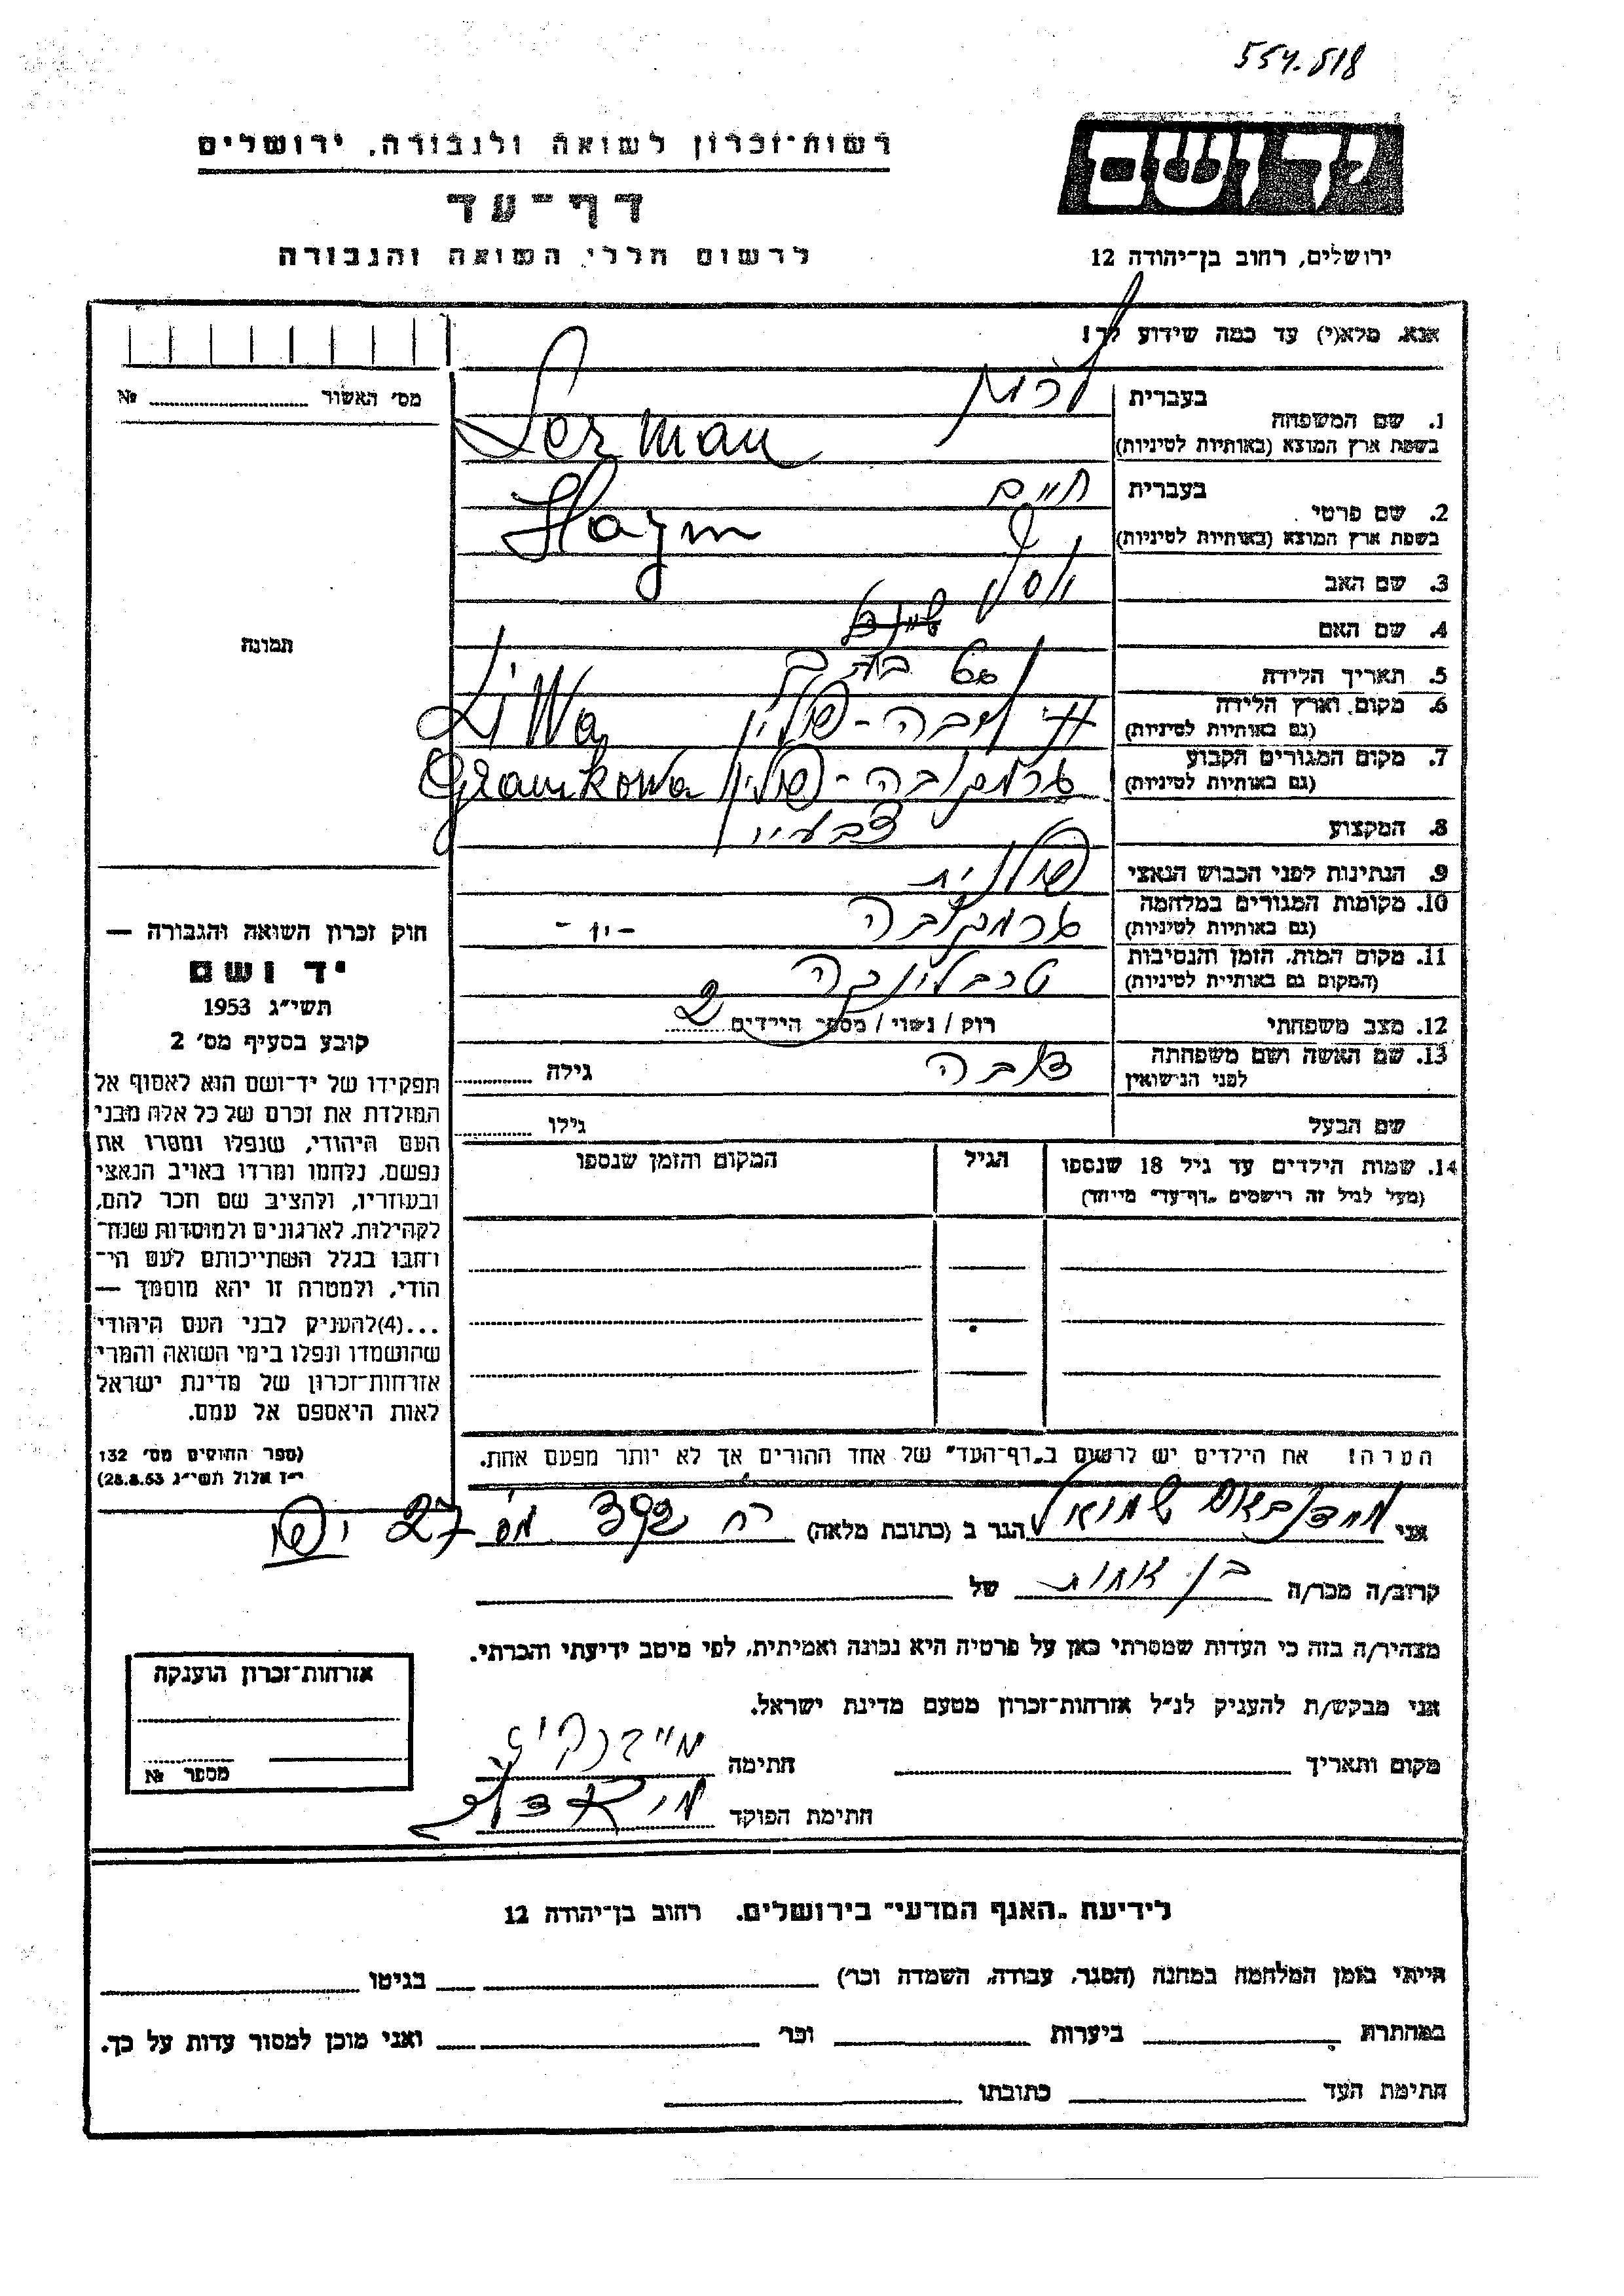 554.518
רשות-זכרון לשואה ולגבורה, ירושלים
דף-עד
לרשום חללי השואה והגבורה
יד ושם
ירושלים, רחוב בן-יהודה 12
אנא, מלא(י) עד כמה שידוע לך!
מס' האשור № 
1. שם המשפחה
בעברית
בשפת ארץ המוצא (באותיות לטיניות)
Lerman
2. שם פרטי
בעברית חיים
בשפת ארץ המוצא (באותיות לטיניות)
Haym
3. שם האב יוסף
4. שם האם
5. תאריך הלידה
6. מקום וארץ הלידה
(גם באותיות לטיניות)
פולין Liwa
7. מקום המגורים הקבוע
(גם באותיות לטיניות)
גרמקובה - פולין
8. המקצוע
9. הנתינות לפני הכבוש הנאצי פולנית
10. מקומות המגורים במלחמה
(גם באותיות לטיניות)
גרמקובה -"-
11. מקום המות, הזמן והנסיבות
(המקום גם באותיית לטיניות)
טרבלינקה
12. מצב משפחתי רוק / נשוי / מספר הילדים 2
13. שם האשה ושם משפחתה
לפני הנישואין
גילה
שם הבעל גילו
14. שמות הילדים עד גיל 18 שנספו
(מעל לגיל זה רישמים „דף-עד" מייחד)
הגיל
המקום והזמן שנספו
הערה! את הילדים יש לרשום ב„דף-העד" של אחד ההורים אך לא יותר מפעם אחת.
תמונה
חוק זכרון השואה והגבורה —
יד ושם
תשי"ג 1953
קובע בסעיף מס' 2
תפקידו של יד-ושם הוא לאסוף אל
המולדת את זכרם של כל אלה מבני
העם היהודי, שנפלו ומסרו את
נפשם, נלחמו ומרדו באויב הנאצי
ובעוזריו, ולהציב שם וזכר להם,
לקהילות, לארגונים ולמוסדות שנח-
רחבו בגלל השתייכותם לעם הי-
הודי, ולמטרה זו יהא מוסמך —
...(4)להעניק לבני העם היהודי
שהושמדו ונפלו בימי השואה והמרי
אזרחות-זכרון של מדינת ישראל
לאות היאספם אל עמם.
(ספר החוקים מס' 132
י"ז אלול תשי"ג 28.8.53)
אני שמואל הגר ב (כתובת מלאה) רח מס 27 יפו
קרוב/ה מכר/ה בן אחות של
מצהיר/ה בזה כי העדות שמסרתי כאן על פרטיה היא נכונה ואמיתית, לפי מיטב ידיעתי והכרתי.
אני מבקש/ת להעניק לנ"ל אזרחות-זכרון מטעם מדינת ישראל.
מקום ותאריך חתימה
חתימת הפוקד
אזרחות-זכרון הוענקה
מספר №
לידיעת „האגף המדעי" בירושלים. רחוב בן-יהודה 12
הייתי בזמן המלחמה במחנה (הסגר, עבודה, השמדה וכו') בגיטו
במחתרת ביערות וכו' ואני מוכן למסור עדות על כך.
חתימת העד כתובתו